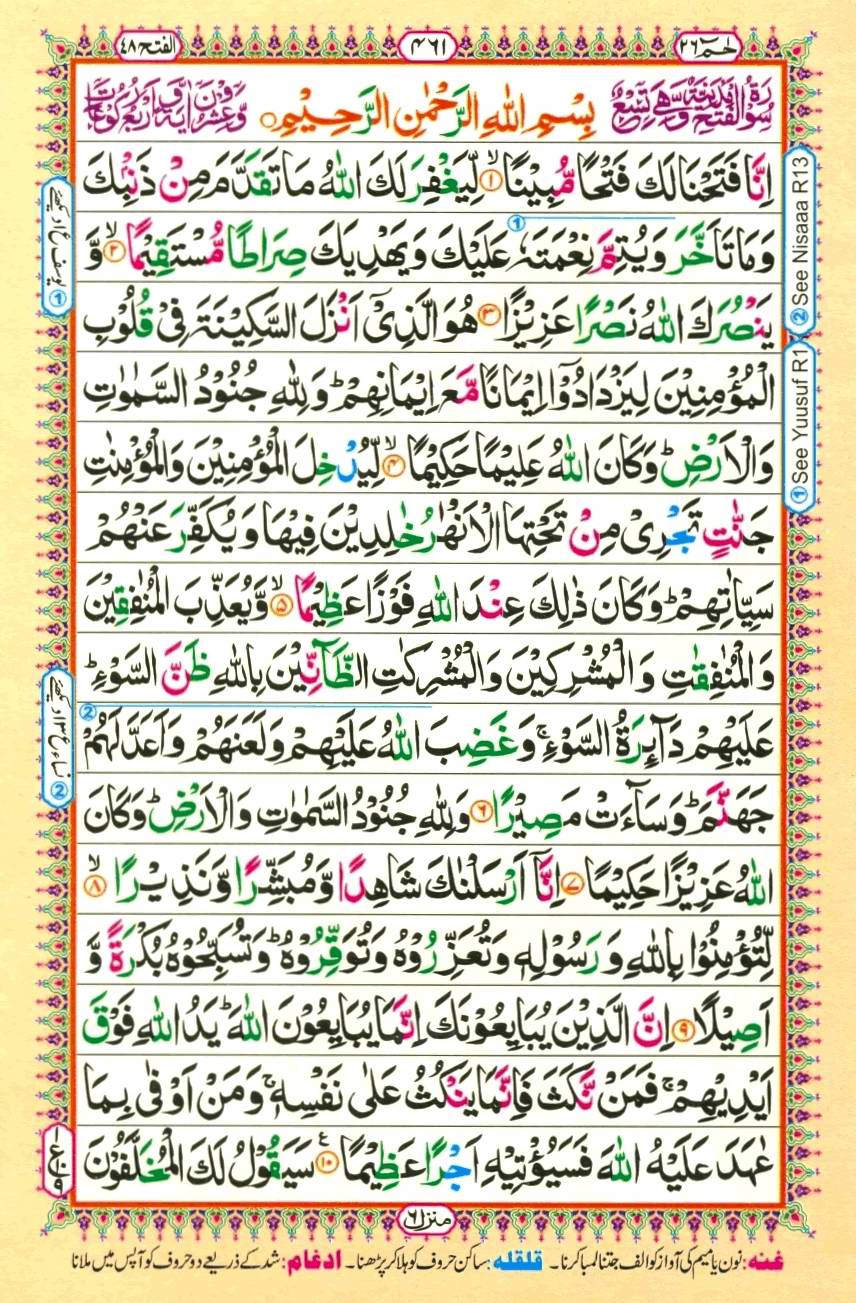 حٰم ٢٦
٤٦١
الفتح ٤٨
سُوْرَةُ الْفَتْحِ مَدَنِيَّةٌ وَّهِيَ تِسْعٌ
بِسْمِ اللّٰهِ الرَّحْمٰنِ الرَّحِيْمِ
وَّعِشْرُوْنَ اٰيَةً وَّاَرْبَعُ رُكُوْعَاتٍ
اِنَّا فَتَحْنَا لَكَ فَتْحًا مُّبِيْنًا ۙ‏ ١ لِّيَغْفِرَ لَكَ اللّٰهُ مَا تَقَدَّمَ مِنْ ذَنْۢبِكَ
وَمَا تَاَخَّرَ وَيُتِمَّ نِعْمَتَهٗ عَلَيْكَ وَيَهْدِيَكَ صِرَاطًا مُّسْتَقِيْمًا ۙ ٢ وَّ
يَنْصُرَكَ اللّٰهُ نَصْرًا عَزِيْزًا ٣ هُوَ الَّذِيْۤ اَنْزَلَ السَّكِيْنَةَ فِيْ قُلُوْبِ
الْمُؤْمِنِيْنَ لِيَزْدَادُوْۤا اِيْمَانًا مَّعَ اِيْمَانِهِمْ ؕ وَلِلّٰهِ جُنُوْدُ السَّمٰوٰتِ
وَالْاَرْضِ ؕ وَكَانَ اللّٰهُ عَلِيْمًا حَكِيْمًا ۙ ٤ لِّيُدْخِلَ الْمُؤْمِنِيْنَ وَالْمُؤْمِنٰتِ
جَنّٰتٍ تَجْرِيْ مِنْ تَحْتِهَا الْاَنْهٰرُ خٰلِدِيْنَ فِيْهَا وَيُكَفِّرَ عَنْهُمْ
سَيِّاٰتِهِمْ ؕ وَكَانَ ذٰلِكَ عِنْدَ اللّٰهِ فَوْزًا عَظِيْمًا ۙ ٥ وَّيُعَذِّبَ الْمُنٰفِقِيْنَ
وَالْمُنٰفِقٰتِ وَالْمُشْرِكِيْنَ وَالْمُشْرِكٰتِ الظَّآنِّيْنَ بِاللّٰهِ ظَنَّ السَّوْءِ ؕ
عَلَيْهِمْ دَآئِرَةُ السَّوْءِ ۚ وَغَضِبَ اللّٰهُ عَلَيْهِمْ وَلَعَنَهُمْ وَاَعَدَّ لَهُمْ
جَهَنَّمَ ؕ وَسَآءَتْ مَصِيْرًا ٦ وَلِلّٰهِ جُنُوْدُ السَّمٰوٰتِ وَالْاَرْضِ ؕ وَكَانَ
اللّٰهُ عَزِيْزًا حَكِيْمًا ٧ اِنَّاۤ اَرْسَلْنٰكَ شَاهِدًا وَّمُبَشِّرًا وَّنَذِيْرًا ۙ ٨
لِّتُؤْمِنُوْا بِاللّٰهِ وَرَسُوْلِهٖ وَتُعَزِّرُوْهُ وَتُوَقِّرُوْهُ ؕ وَتُسَبِّحُوْهُ بُكْرَةً وَّ
اَصِيْلًا ٩ اِنَّ الَّذِيْنَ يُبَايِعُوْنَكَ اِنَّمَا يُبَايِعُوْنَ اللّٰهَ ؕ يَدُ اللّٰهِ فَوْقَ
اَيْدِيْهِمْ ۚ فَمَنْ نَّكَثَ فَاِنَّمَا يَنْكُثُ عَلٰى نَفْسِهٖ ۚ وَمَنْ اَوْفٰى بِمَا
عٰهَدَ عَلَيْهُ اللّٰهَ فَسَيُؤْتِيْهِ اَجْرًا عَظِيْمًا ١٠ سَيَقُوْلُ لَكَ الْمُخَلَّفُوْنَ
② See Nisaaa R13
① See Yuusuf R1
① یوسف ع ۱ دیکھیے
② نساء ع ۱۳ دیکھیے
منزل ٦
غنه: نون یا میم کی آواز کو الف جتنا لمبا کرنا۔ قلقله: ساکن حروف کو ہلا کر پڑھنا۔ ادغام: شد کے ذریعے دو حروف کو آپس میں ملانا